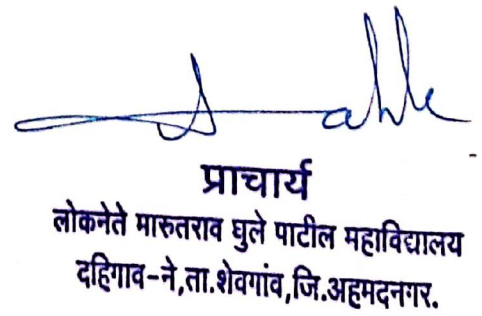 प्राचार्य
लोकनेते मारुतराव घुले पाटील महाविद्यालय
दहिगाव-ने,ता.शेवगांव,जि.अहमदनगर.